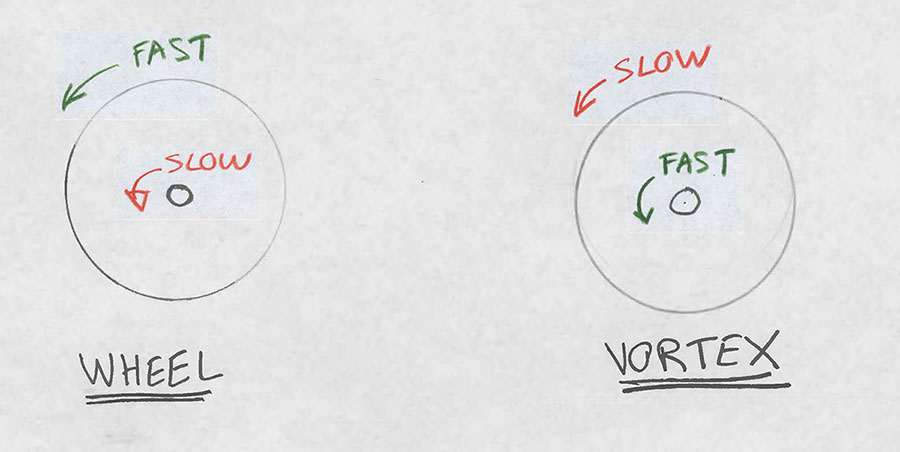 FAST
SLOW
WHEEL
SLOW
FAST
VORTEX